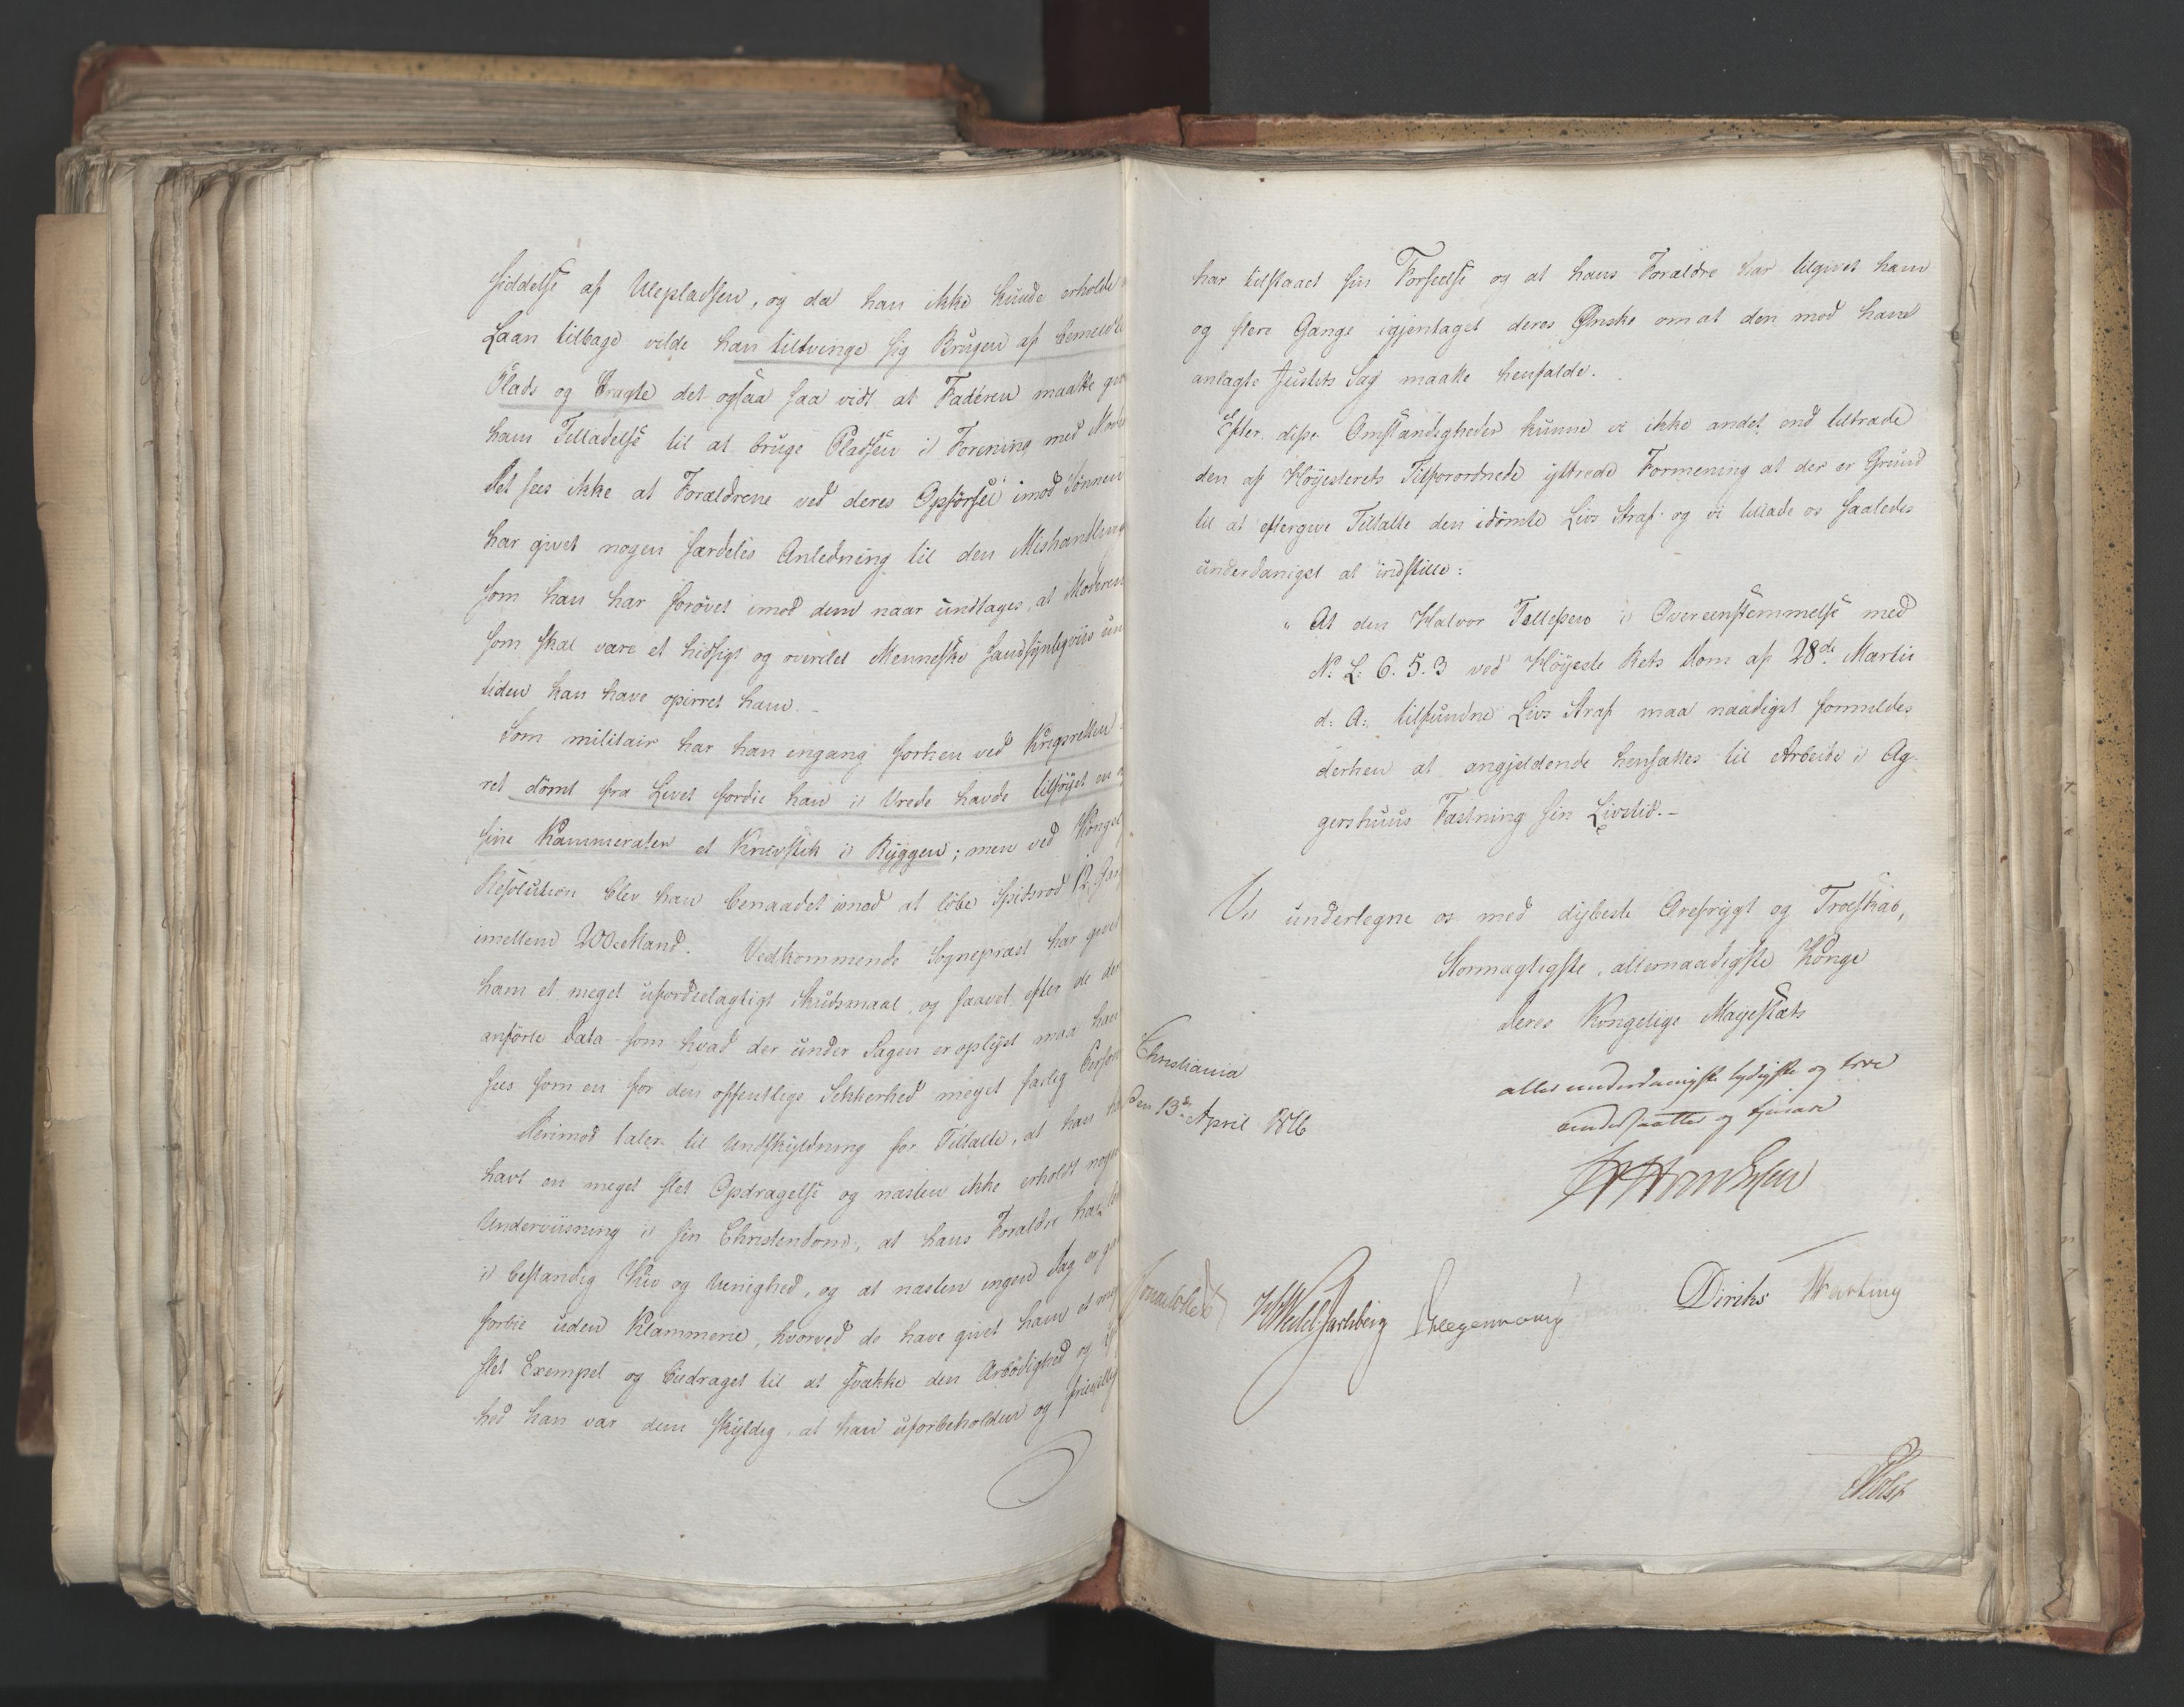 siddelse af Ulepladsen, og da han ikke kunde erholde
Laan tilbage vilde han tiltvinge sig Brugen af bemeldte
Plads og bragte det ogsaa saa vidt at Faderen maatte
ham Tilladelse til at bruge Pladsen i Forening med
Det sees ikke at Forældrene ved deres Opförsel imod Sönnen
har givet nogen særdeles Anledning til den Mishandling
som han har forövet imod dem naar undtages, at Moderen
som skal være et hidsigt og overilet Menneske sandsynligviis
tiden kan have opirret ham. –
Som militair har han engang forhen ved Krigsretten
ret dömt fra Livet fordi han i Vrede havde tilföyet en
sine Kammerater et Knivstik i Ryggen; men ved Kongel
Resolution blev han benaadet imod at löbe Spidsrod 12
imellem 200 Mand. Vedkommende Sognepræst har givet
ham et meget ufordeelagtigt Skudsmaal, og saavel efter de der
anförte Data som hvad der under Sagen er oplyst maa han
sees som en for den offentlige Sikkerhed meget farlig Person
Derimod taler til Undskyldning for Tiltalte, at han
havt en meget slet Opdragelse og næsten ikke erholdt nogen
Underviisning i sin Christendom, at hans Forældre har
i bestandig Kiv og Uenighed, og at næsten ingen Dag er
forbie uden Klammerie, hvorved de have givet ham et
slet Exempel og bidraget til at svække den Ærbödighed og
hed han var dem skyldig, at han uforbeholden og frievillig
har tilstaaet sin Forseelse og at hans Forældre har tilgivet ham
og flere Gange igjentaget deres Ønske om at den mod ham
anlagte Justits Sag maatte henfalde.
Efter disse Omstændigheder kunne vi ikke andet end tiltræde
den af Höyesterets Tilforordnede yttrede Formening at der er Grund
til at eftergive Tiltalte den idömte Livs Straf og vi tillade os saaledes
underdanigst at indstille:
" At den Halvor Tellefsen i Overeenstemmelse med
N: L: 6. 5. 3 ved Höyeste Rets Dom af 28de Martii
d: A: tilfundne Livs Straf maa naadigst formildes
derhen at angjeldende hensættes til Arbeide i Ag-
gershuus Fæstning sin Livstid. –
Vi undertegne os med dybeste Ærefrygt og Troeskab,
Stormægtigste, allernaadigste Konge
Deres Kongelige Majestæts
Christiania
den 13de April 1816
allerunderdanigste lydigste og troe
undersaatter og tjenere
Jonas Collett HWedel Jarlsberg Diriks
Holst